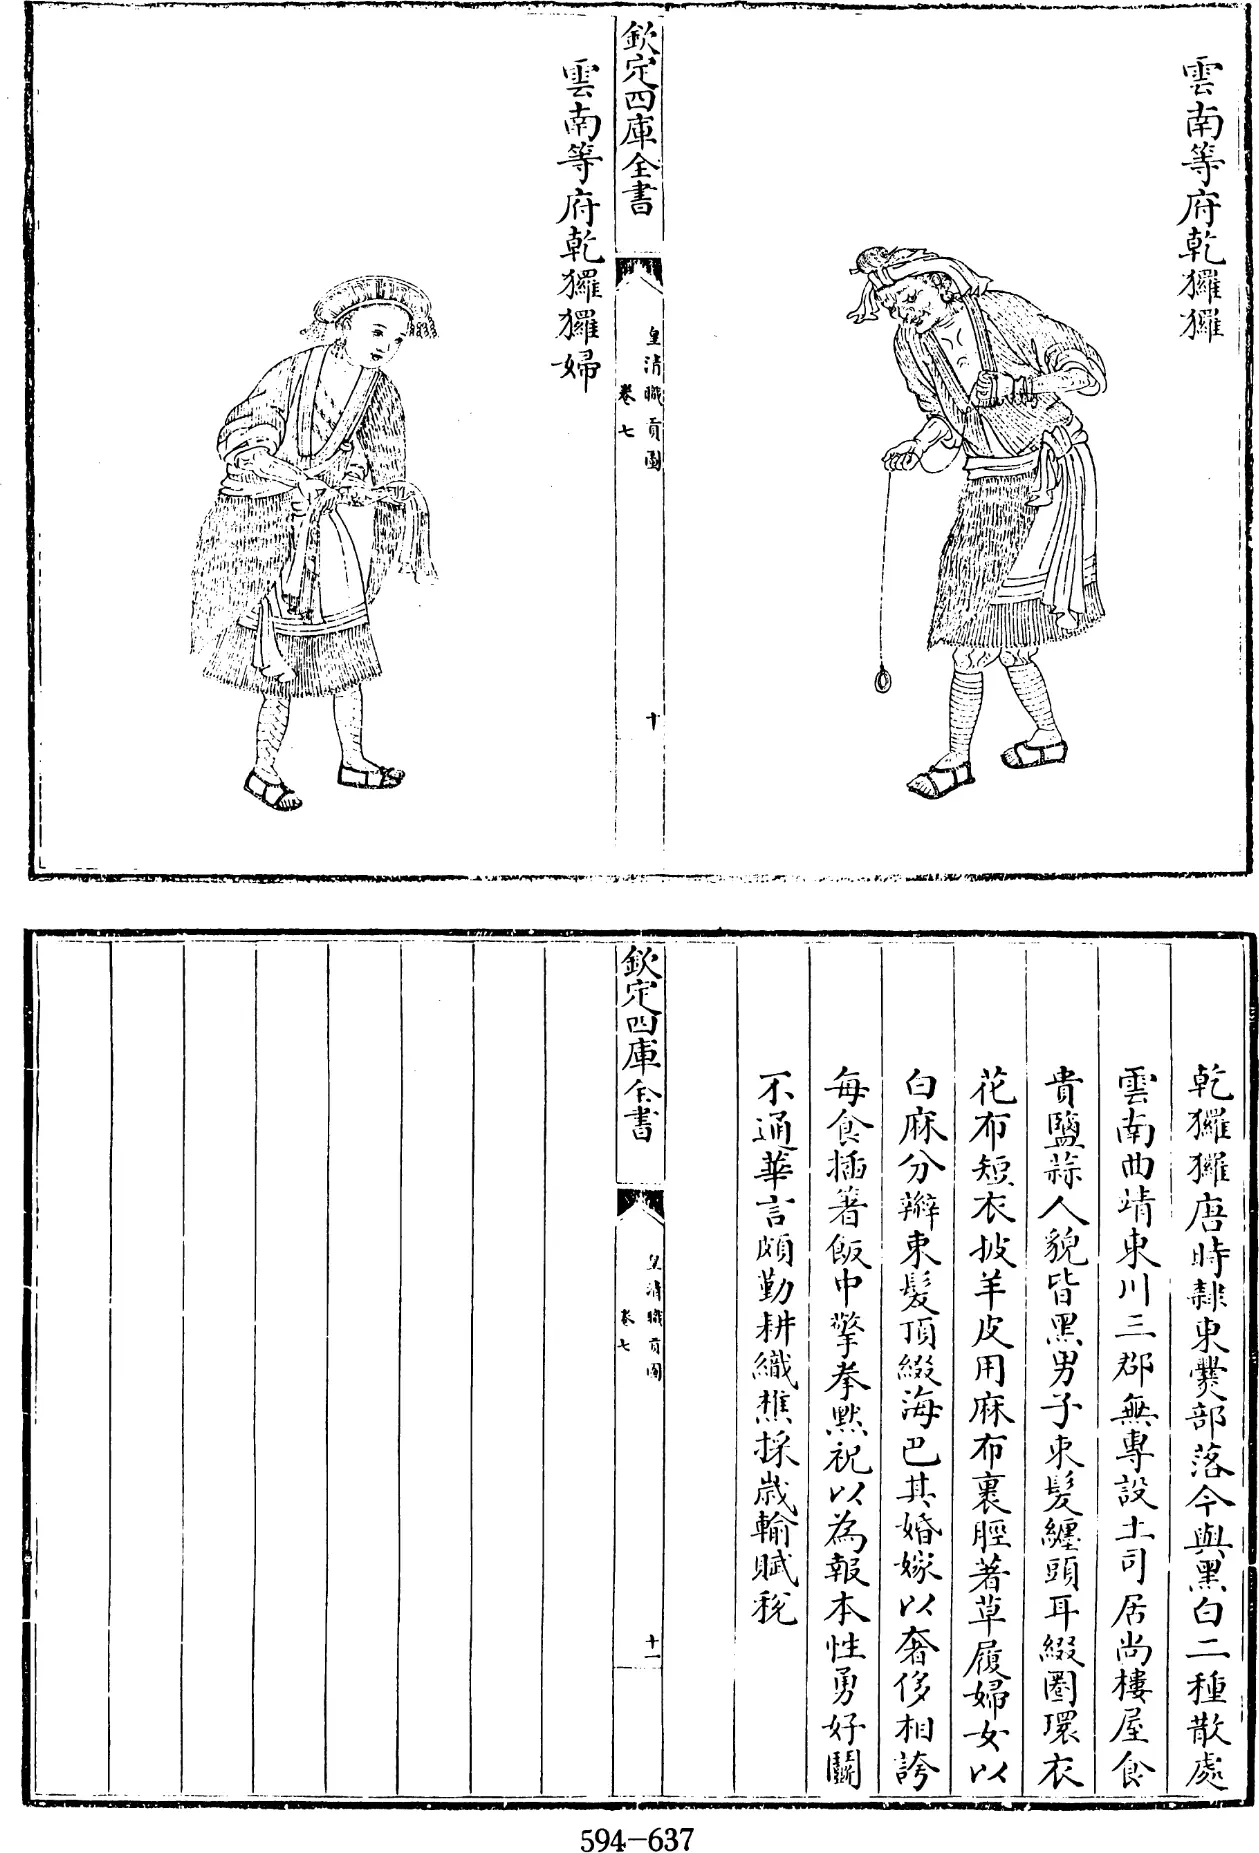 雲南等府乾玀玀
欽定四庫全書
皇清職貢圖
卷七
十
雲南等府乾玀玀婦
乾玀玀唐時隸東爨部落今與黑白二種散處
雲南曲靖東川三郡無專設土司居尚樓屋食
貴鹽蒜人貌皆黑男子束髮纏頭耳綴圈環衣
花布短衣披羊皮用麻布裹脛著草履婦女以
白麻分辮束髮頂綴海巴其婚嫁以奢侈相誇
每食插箸飯中擎拳黙祝以為報本性勇好鬭
不通華言頗勤耕織樵採歳輸賦稅
欽定四庫全書
皇清職貢圖
卷七
十一
594-637